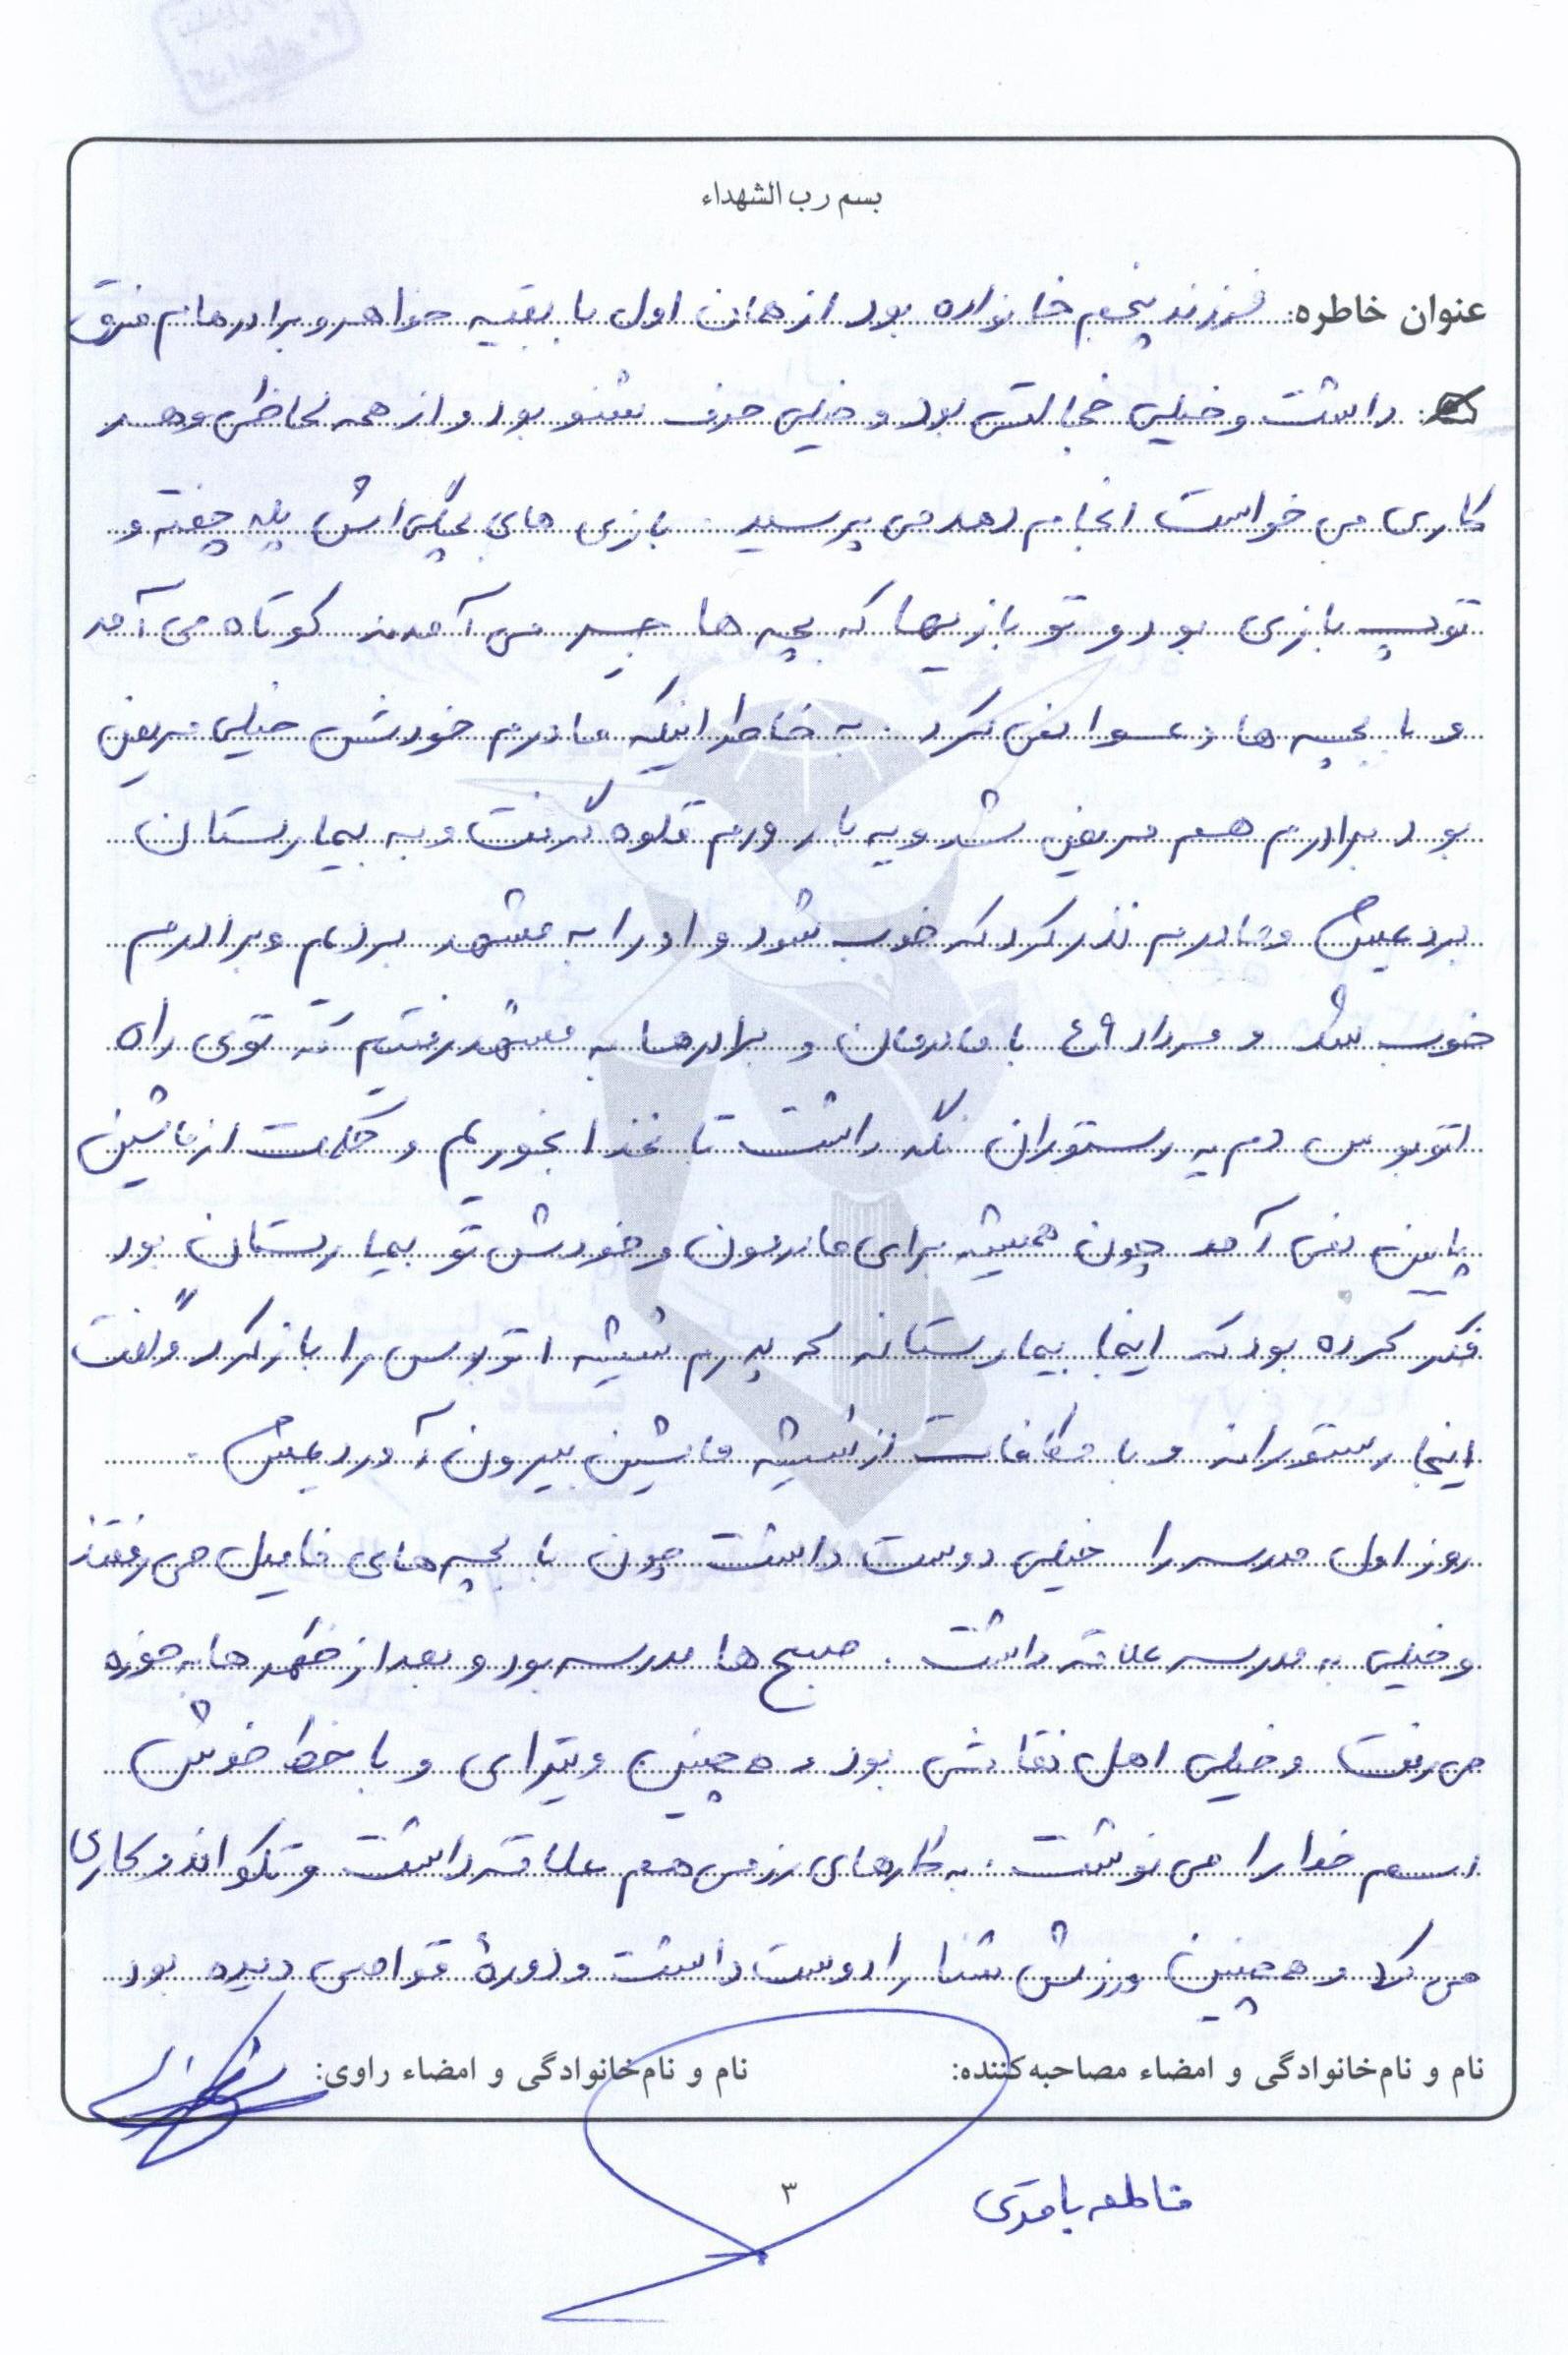 بسم رب الشهداء
عنوان خاطره: فرزند پنجم خانواده بود از همان اول با بقیه خواهر و برادرهام فرق
داشت و خیلی خجالتی بود و خیلی حرف شنو بود و از همه لحاظی و هر
کاری می خواست انجام دهد می پرسید. بازی های بچگی اش یله چفته و
توپ بازی بود و تو بازیها که بچه ها جیر می آمدند کوتاه می آمد
و با بچه ها دعوا نمی کرد. به خاطر اینکه مادرم خودش خیلی مریض
بود برادرم هم مریض شد و یه بار ورم قلوه گرفت و به بیمارستان
بردیمش و مادرم نذر کرد که خوب شود و او را به مشهد بردیم و برادرم
خوب شد و مرداد ۴۹ با مادرمان و برادرها به مشهد رفتیم که توی راه
اتوبوس دم یه رستوران نگه داشت تا غذا بخوریم و حکمت از ماشین
پایین نمی آمد چون همیشه برای مادرمون و خودش تو بیمارستان بود
فکر کرده بود که اینجا بیمارستانه که پدرم شیشه اتوبوس را باز کرد و گفت
اینجا رستورانه و با مکافات از شیشه ماشین بیرون آوردیمش.
روز اول مدرسه را خیلی دوست داشت چون با بچه های فامیل می رفتند
و خیلی به مدرسه علاقه داشت. صبح ها مدرسه بود و بعد از ظهر ها به حوزه
می رفت و خیلی اهل نقاشی بود و همچنین ویترای و با خط خوش
اسم خدا را می نوشت. به کارهای رزمی هم علاقه داشت و تکواندو کاری
می کرد و همچنین ورزش شنا را دوست داشت و دورهٔ قواصی دیده بود
نام و نام‌خانوادگی و امضاء مصاحبه‌کننده: نام و نام‌خانوادگی و امضاء راوی:
فاطمه
۳